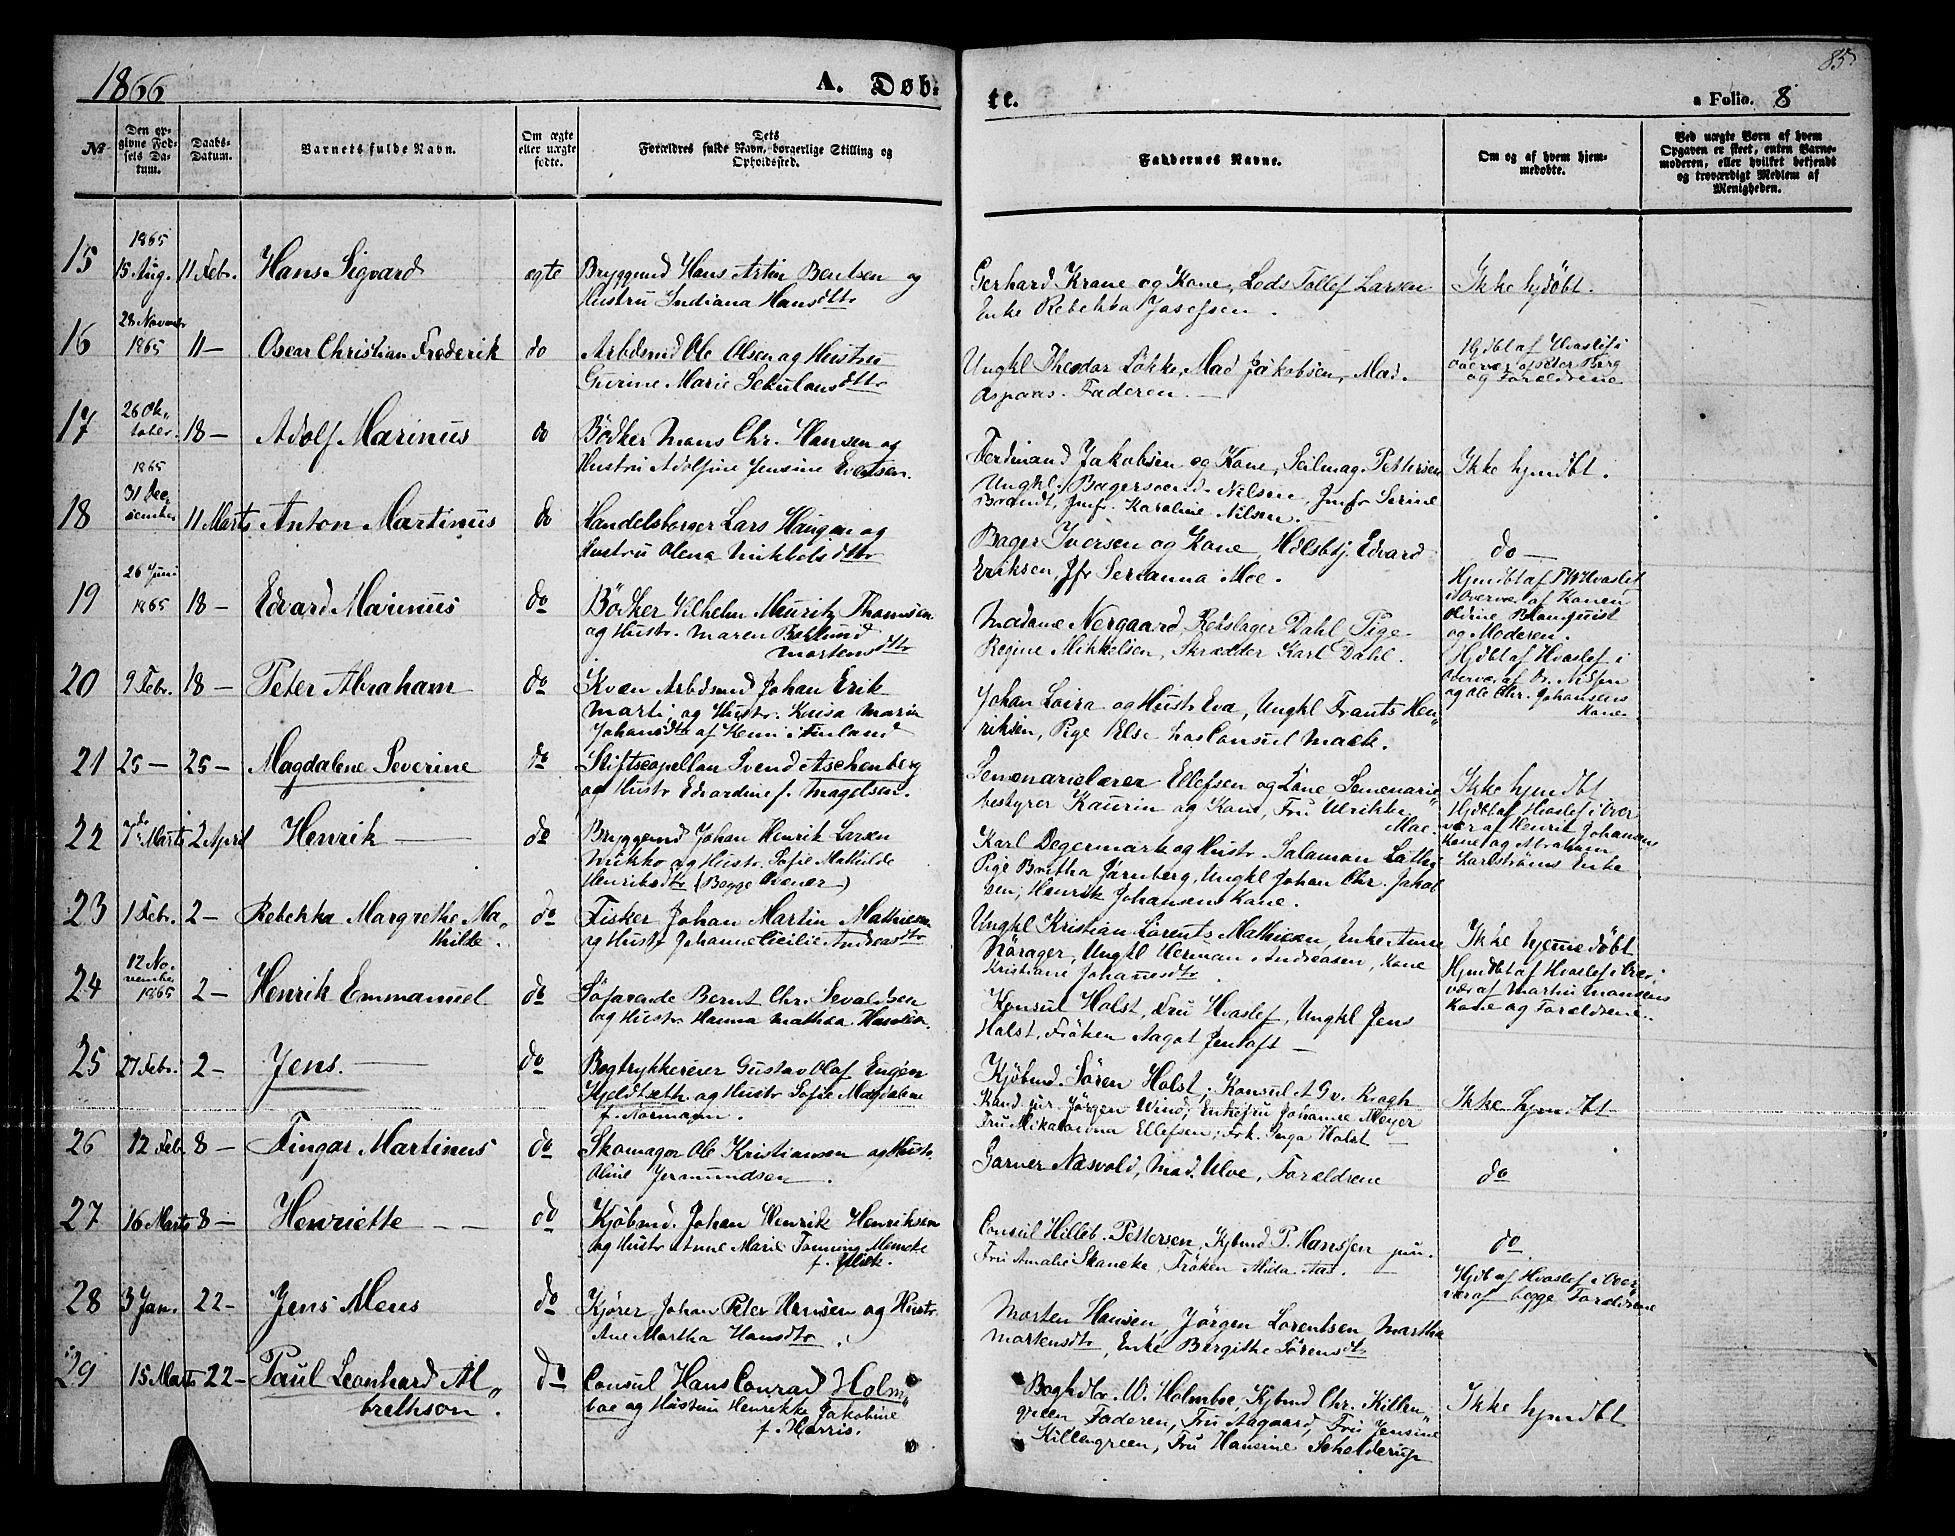 1866
A. Døb-
te.
85
a Folio. 8
No
Den er-
givne Fød-
sels Da-
tum.
Daabs-
Datum.
Barnets fulde Navn.
Om ægte
eller uægte
fødte.
Dets
Forældres fulde Navn, borgerlige Stilling og
Opholdssted.
Faddernes Navne.
Om og af hvem hjem-
medøbte.
Ved uægte Børn af hvem
Opgaven er skeet, enten Barne-
moderen, eller hvilket bekjendt
og troværdigt Medlem af
Menigheden.
15
1865
15 Aug.
11 Febr.
Hans Sigvard
ægte
Bryggemd Hans Artin Bentsen og
Hustru Indiana Hansdtr
Gerhard Krane og Kone, Lods Tollef Larsen
Enke Rebekka Josefsen.
Ikke hjdöbt.
16
28 Novembr
1865
11 —
Oscar Christian Frederik
do
Arbdsmd Ole Olsen og Hustru
Gurine Marie Sekulausdtr
Ungkl Theodor Løkke, Mad Jakobsen, Mad.
Aspaas. Faderen. —
Hjdbt af Hvaslef i
Overvær af Peter Berg
og Forældrene
17
26 Ok-
tober.
1865
18 —
Adolf Marinus
do
Bödker Mons Chr. Hansen og
Hustru Adolfine Jensine Evertsen.
Ferdinand Jakobsen og Kone, Seilmag. Pettersen
Ungkl. Bagersvend Nilsen, Jmfr Serine
Brandt, Jmfr. Karoline Nilsen.
Ikke hjmdbt.
18
31 De-
sember
11 Marts
Anton Martinus
do
Handelsborger Lars Haugan og
Hustru Olena Mikkelsdtr
Bager Iversen og Kone, Hdlsbtj. Edvard
Eriksen Jfr Serianna Moe.
do —
19
26 Juni
1865
18 —
Edvard Marinus
do
Bödker Vilhelm Mauritz Thomsen
og Hustr. Maren Berglund
Martensdtr
Madame Norgaard, Rebslager Dahl, Pige
Regine Mikkelsen, Skrædder Karl Dahl.
Hjmdbt af FWHvaslef
i Overvær af Konen
Oldine Blomquist
og Moderen.
20
9 Febr.
18 —
Peter Abraham
do
Kvæn Arbdsmd Johan Erik
Marti, og Hustr. Kaisa Maria
Johansdtr af Kemi i Finland
Johan Loira og Hustr Eva, Ungkl Frants Hen-
riksen, Pige Else hos Consul Mack.
Hjdbt af Hvaslef i
Overvær af B. Nilsen
og Ole Chr. Johansens
Kone
21
25 —
25 —
Magdalene Severine
do
Stiftscapellan Svend Aschenberg
og Hustr Edvardine f. Magelsen.
Semenarielærer Ellefsen og Kone Semenarie-
bestyrer Kaurin og Kone, Fru Ulrikke
Moe.
Ikke hjmdbt
22
7de Marts
2 April
Henrik —
do
Bryggemd Johan Henrik Larsen
Mikko og Hustr. Sofie Mathilde
Henriksdtr (Begge Kvæner)
Karl Degermark og Hustr. Salamon Lathi
Pige Britha Järnberg, Ungkl Johan Chr. Jakob-
sen, Henrik Johansens Kone.
Hjdbt af Hvaslef i Over
vær af Henrik Johansens
Kone og Abraham
Karlströms Enke
23
1 Febr.
2 —
Rebekka Margrethe Ma-
thilde.
do
Fisker Johan Martin Mathiesen
og Hustr Johanne Cicilie Andreasdtr
Ungkl Kristian Lorents Mathiesen, Enke Anne
Nörager, Ungkl Herman Andreasen, Kone
Kristiane Johannesdtr
Ikke hjemedøbt
24
12 No-
vember
1865
2 —
Henrik Emmanuel
do
Söfarende Bernt Chr. Sevaldsen
og Hustr Hanna Mathea Hansen.
Konsul Holst, Fru Hvaslef, Ungkl Jens
Holst, Fröken Aagot Jentoft —
Hjmdbt af Hvaslef i Over
vær af Martin Monsens
Kone og Forældrene.
25
27 Febr.
2 —
Jens. —
do
Bogtrykkereier Gustav Olaf Eugén
Kjeldseth og Hustr Sofie Magdalene
f. Normann.
Kjöbmd. Sören Holst, Konsul A Gv. Kragh
Kand jur. Jörgen Wind, Enkefru Johanne Meyer
Fru Mikalovina Ellefsen, Frk. Inga Holst
Ikke hjmdbt
26
12 Feb.
8 —
Fingar Martinus
do
Skomager Ole Kristiansen og Hustr.
Oline Jermundsen.
Garver Næsvold, Mad. Ulve, Forældrene
do
27
16 Marts
8 —
Henriette — —
do
Kjöbmd. Johan Henrik Henriksen
og Hustr Anne Marie Tonning Meincke
f. Flick.
Consul Hilleb. Pettersen, Kjbmd P. Hanssen jun.
Fru Amalie Skancke, Fröken Mida Aas.
do
28
3 Jan.
22 —
Jens Mens
do
Kjörer Johan Peter Hansen og Hustr.
Ane Martha Hansdtr.
Morten Hansen, Jörgen Lorentsen, Martha
Mortensdtr, Enke Birgitte Sörensdtr
Hjdb af Hvaslef i Over
vær af begge Forældrene
29
15 Marts
22 —
Paul Leonhard Al-
brethson.
do
Consul Hans Conrad Holm-
boe og Hustru Henrikke Jakobine
f. Harris.
Boghdlr W. Holmboe, Kjbmd Chr. Killen-
green Faderen, Fru Aagaard, Fru Jensine
Killengreen, Fru Hansine Schelderup
Ikke hjmdbt